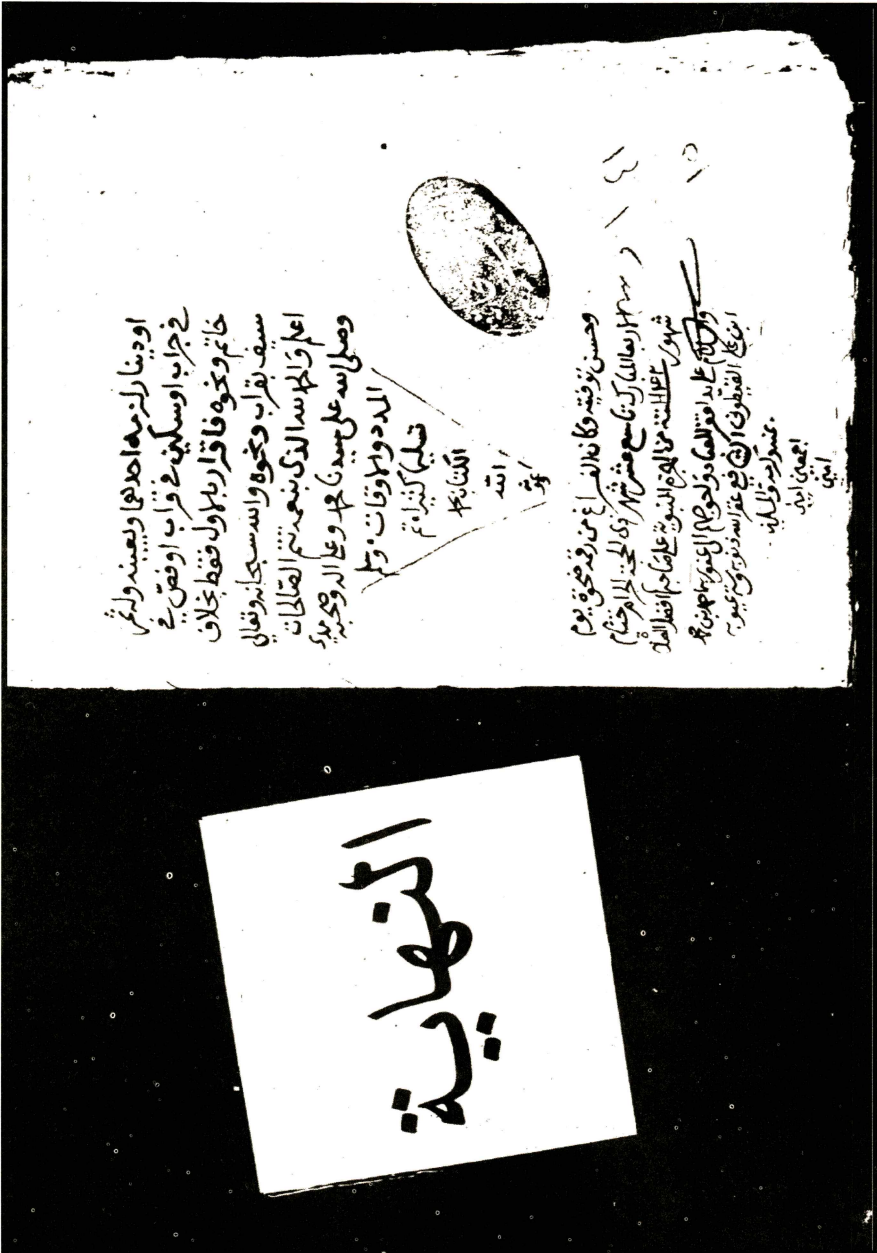 او دينار لزمه احدهما وتعيينه وله تمر
في جراب او سكين في قراب او فص في
خاتم ونحوه فاقرار بالاول فقط بخلاف
سيف بقراب ونحوه والله سبحانه وتعالى
اعلم والحمد لله الذي بنعمه تتم الصالحات
وصلى الله على سيدنا محمد وعلى اله وصحبه
المدد والاوقات وسلم
تسليما كثيرا تم
الكتاب
الله
وحسن توفيقه وكان الفراغ من رقمه ضحوة يوم
المبارك تاسع عشر شهر ذي الحجة الحرام ختام
شهور سنة من الهجرة النبوية على صاحبها افضل الصلاة
والسلام على يد افقر العباد
ابن علي غفر الله ذنوبه وستر عيوبه
اجمعين امين
امين
النهاية